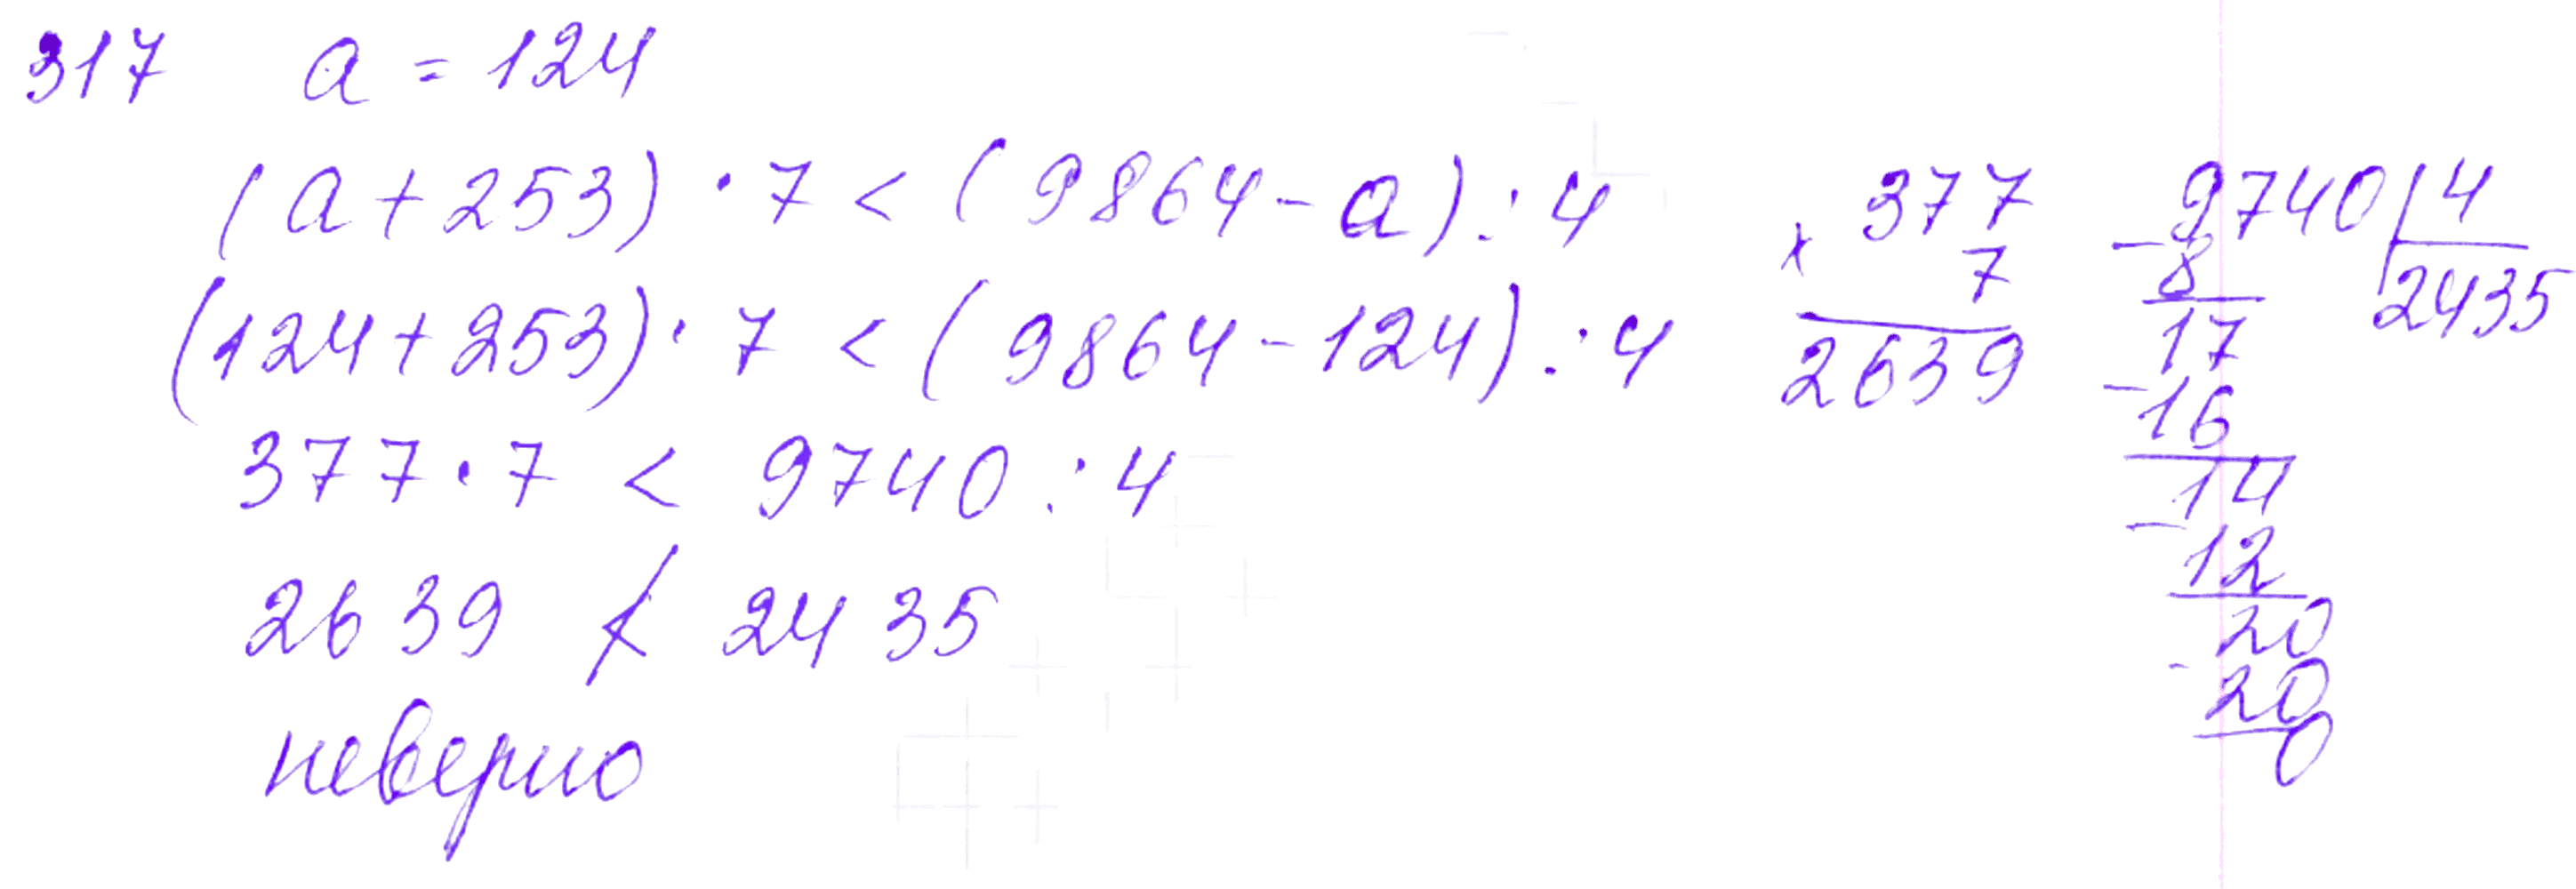 317 a = 124
(a + 253) · 7 < (9864 - a) : 4
(124 + 253) · 7 < (9864 - 124) : 4
377 · 7 < 9740 : 4
2639 ≮ 2435
неверно
× 377
7
2639
- 9740 | 4
8 2435
17
- 16
14
- 12
20
- 20
0